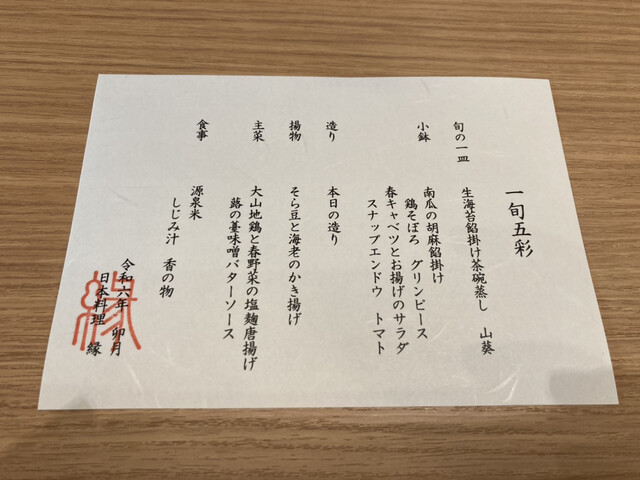 一旬五彩
旬の一皿
生海苔餡掛け茶碗蒸し 山葵
小鉢
南瓜の胡麻餡掛け
鶏そぼろ グリンピース
春キャベツとお揚げのサラダ
スナップエンドウ トマト
造り
本日の造り
揚物
そら豆と海老のかき揚げ
主菜
大山地鶏と春野菜の塩麹唐揚げ
蕗の薹味噌バターソース
食事
源泉米
しじみ汁 香の物
令和六年 卯月
日本料理 縁
縁